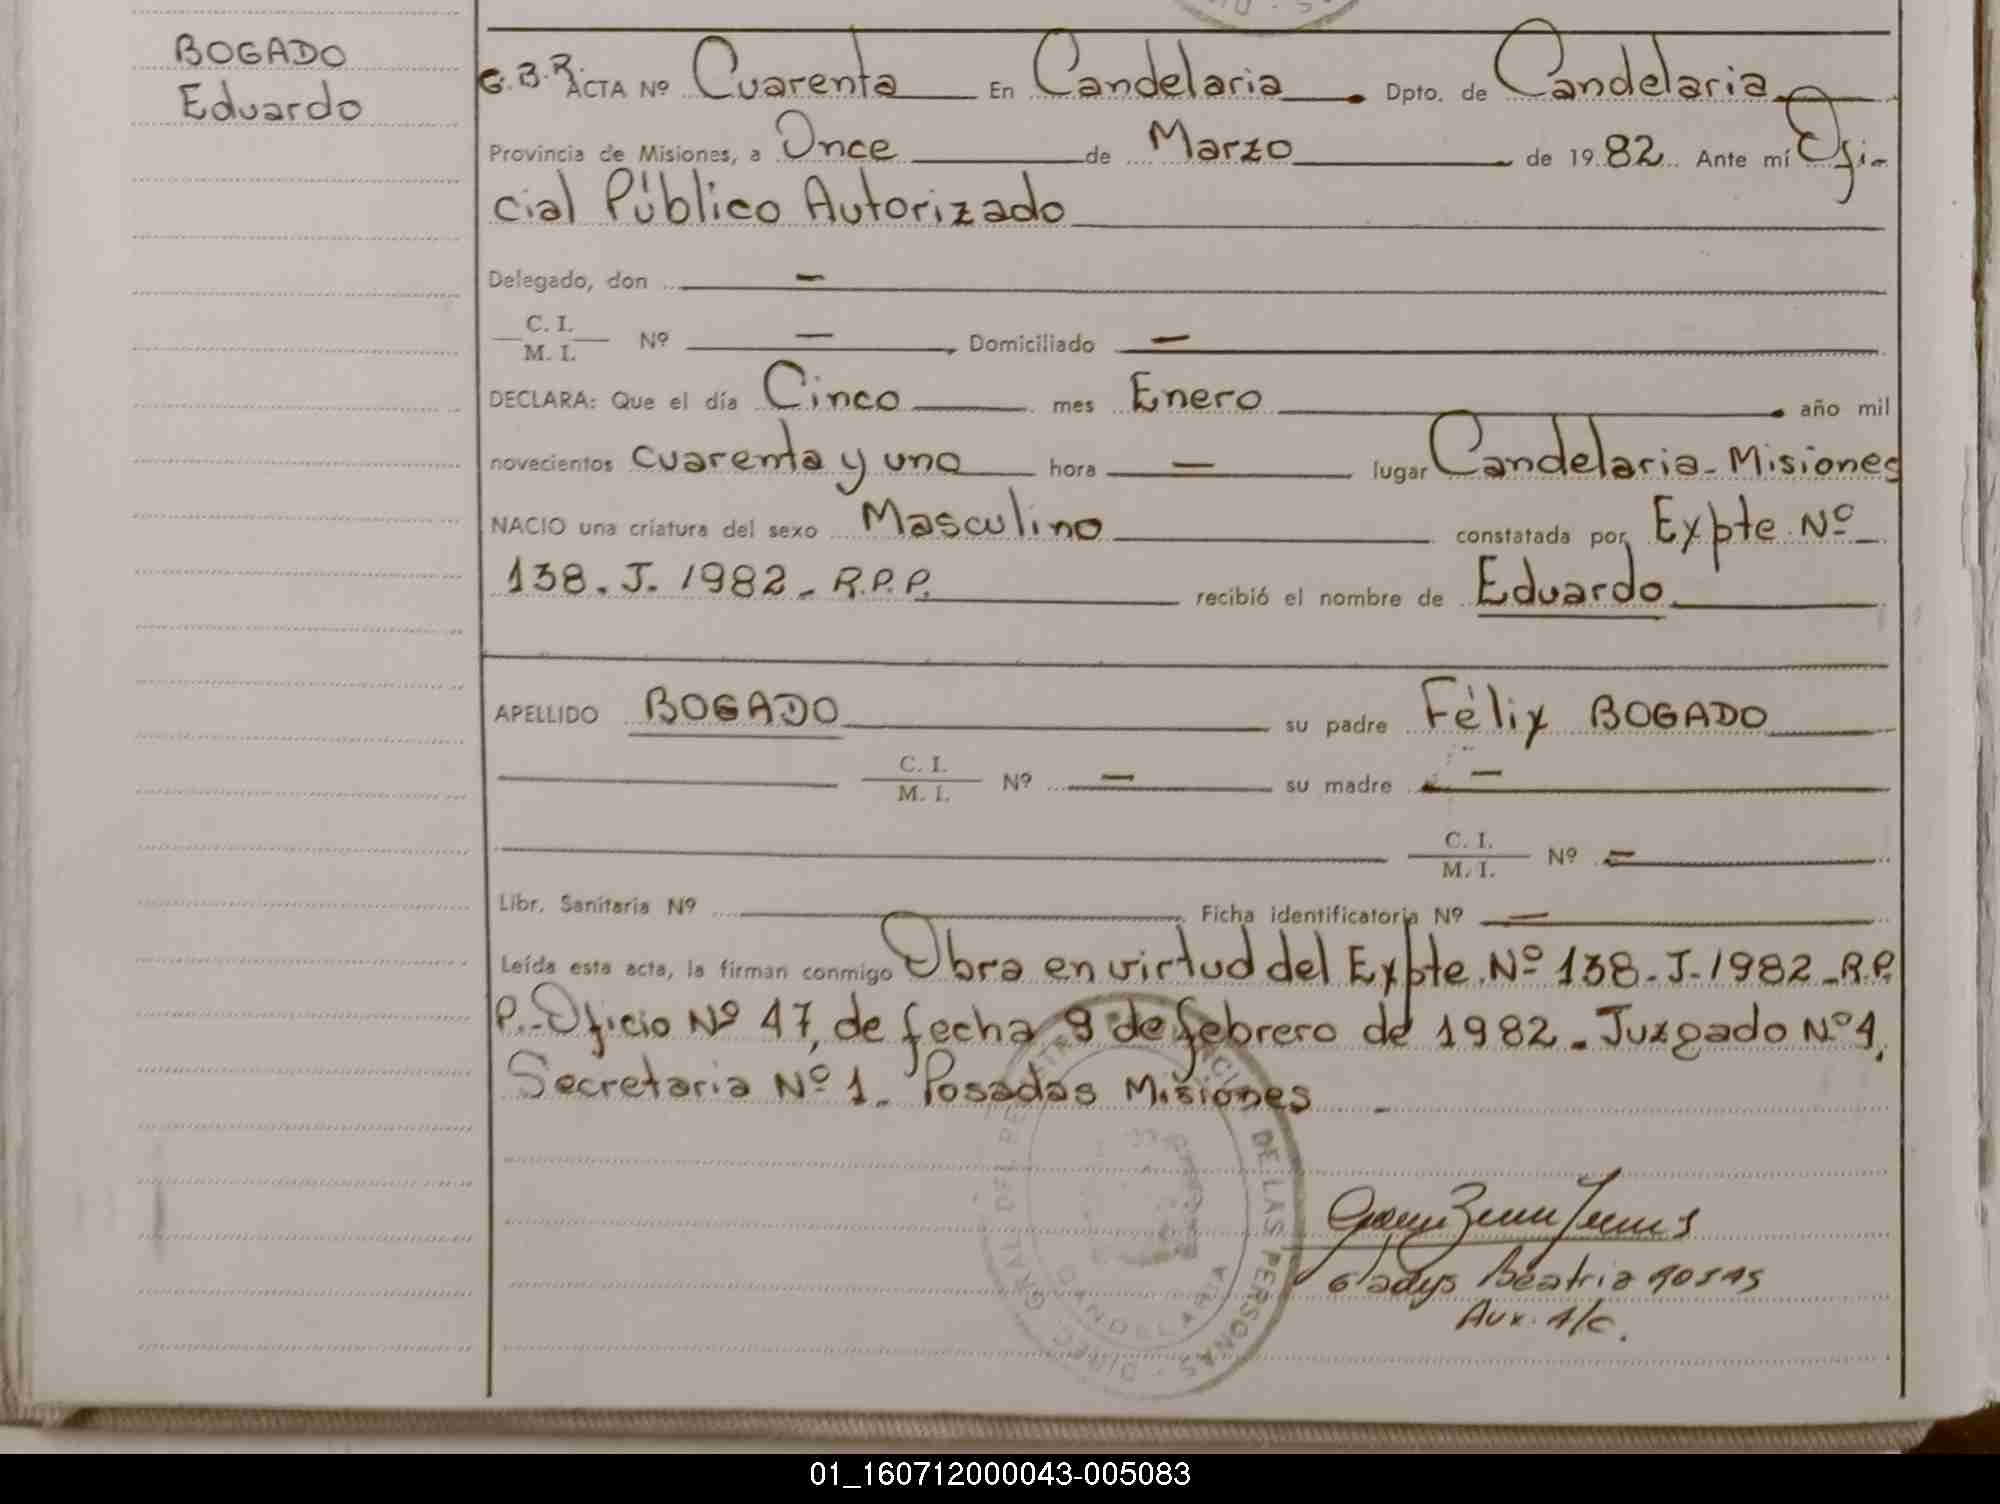 BOGADO
Eduardo
G.B.R. ACTA Nº Cuarenta En Candelaria. Dpto. de Candelaria
Provincia de Misiones, a Once de Marzo de 1982 Ante mí Ofi-
cial Público Autorizado
Delegado, don —
C. I.
M. I. Nº — , Domiciliado —
DECLARA: Que el día Cinco mes Enero . año mil
novecientos cuarenta y uno hora — lugar Candelaria-Misiones
NACIO una criatura del sexo Masculino constatada por Expte Nº
138. J. 1982 - R.P.P. recibió el nombre de Eduardo
APELLIDO BOGADO su padre Félix BOGADO
C. I.
M. I. Nº — su madre —
C. I.
M. I. Nº —
Libr. Sanitaria Nº Ficha identificatoria Nº —
Leída esta acta, la firman conmigo Obra en virtud del Expte. Nº 138-J-1982-R.P.
P.-Oficio Nº 47, de fecha 9 de febrero de 1982. Juzgado Nº 1,
Secretaria Nº 1. Posadas Misiones -
DIREC. GRAL. DEL REG. PROVINCIAL DE LAS PERSONAS
CANDELARIA
Gladys Beatriz Rosas
Aux. A/C.
01_160712000043-005083